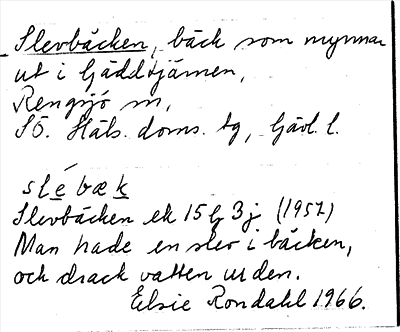 Slevbäcken, bäck som mynnar
ut i Gäddtjärnen,
Rengsjö sn,
SÖ. Häls. doms. tg, Gävl. l.
slébæk
Slevbäcken ek 15 G 3 j (1957)
Man hade en slev i bäcken,
och drack vatten ur den.
Elsie Rondahl 1966.